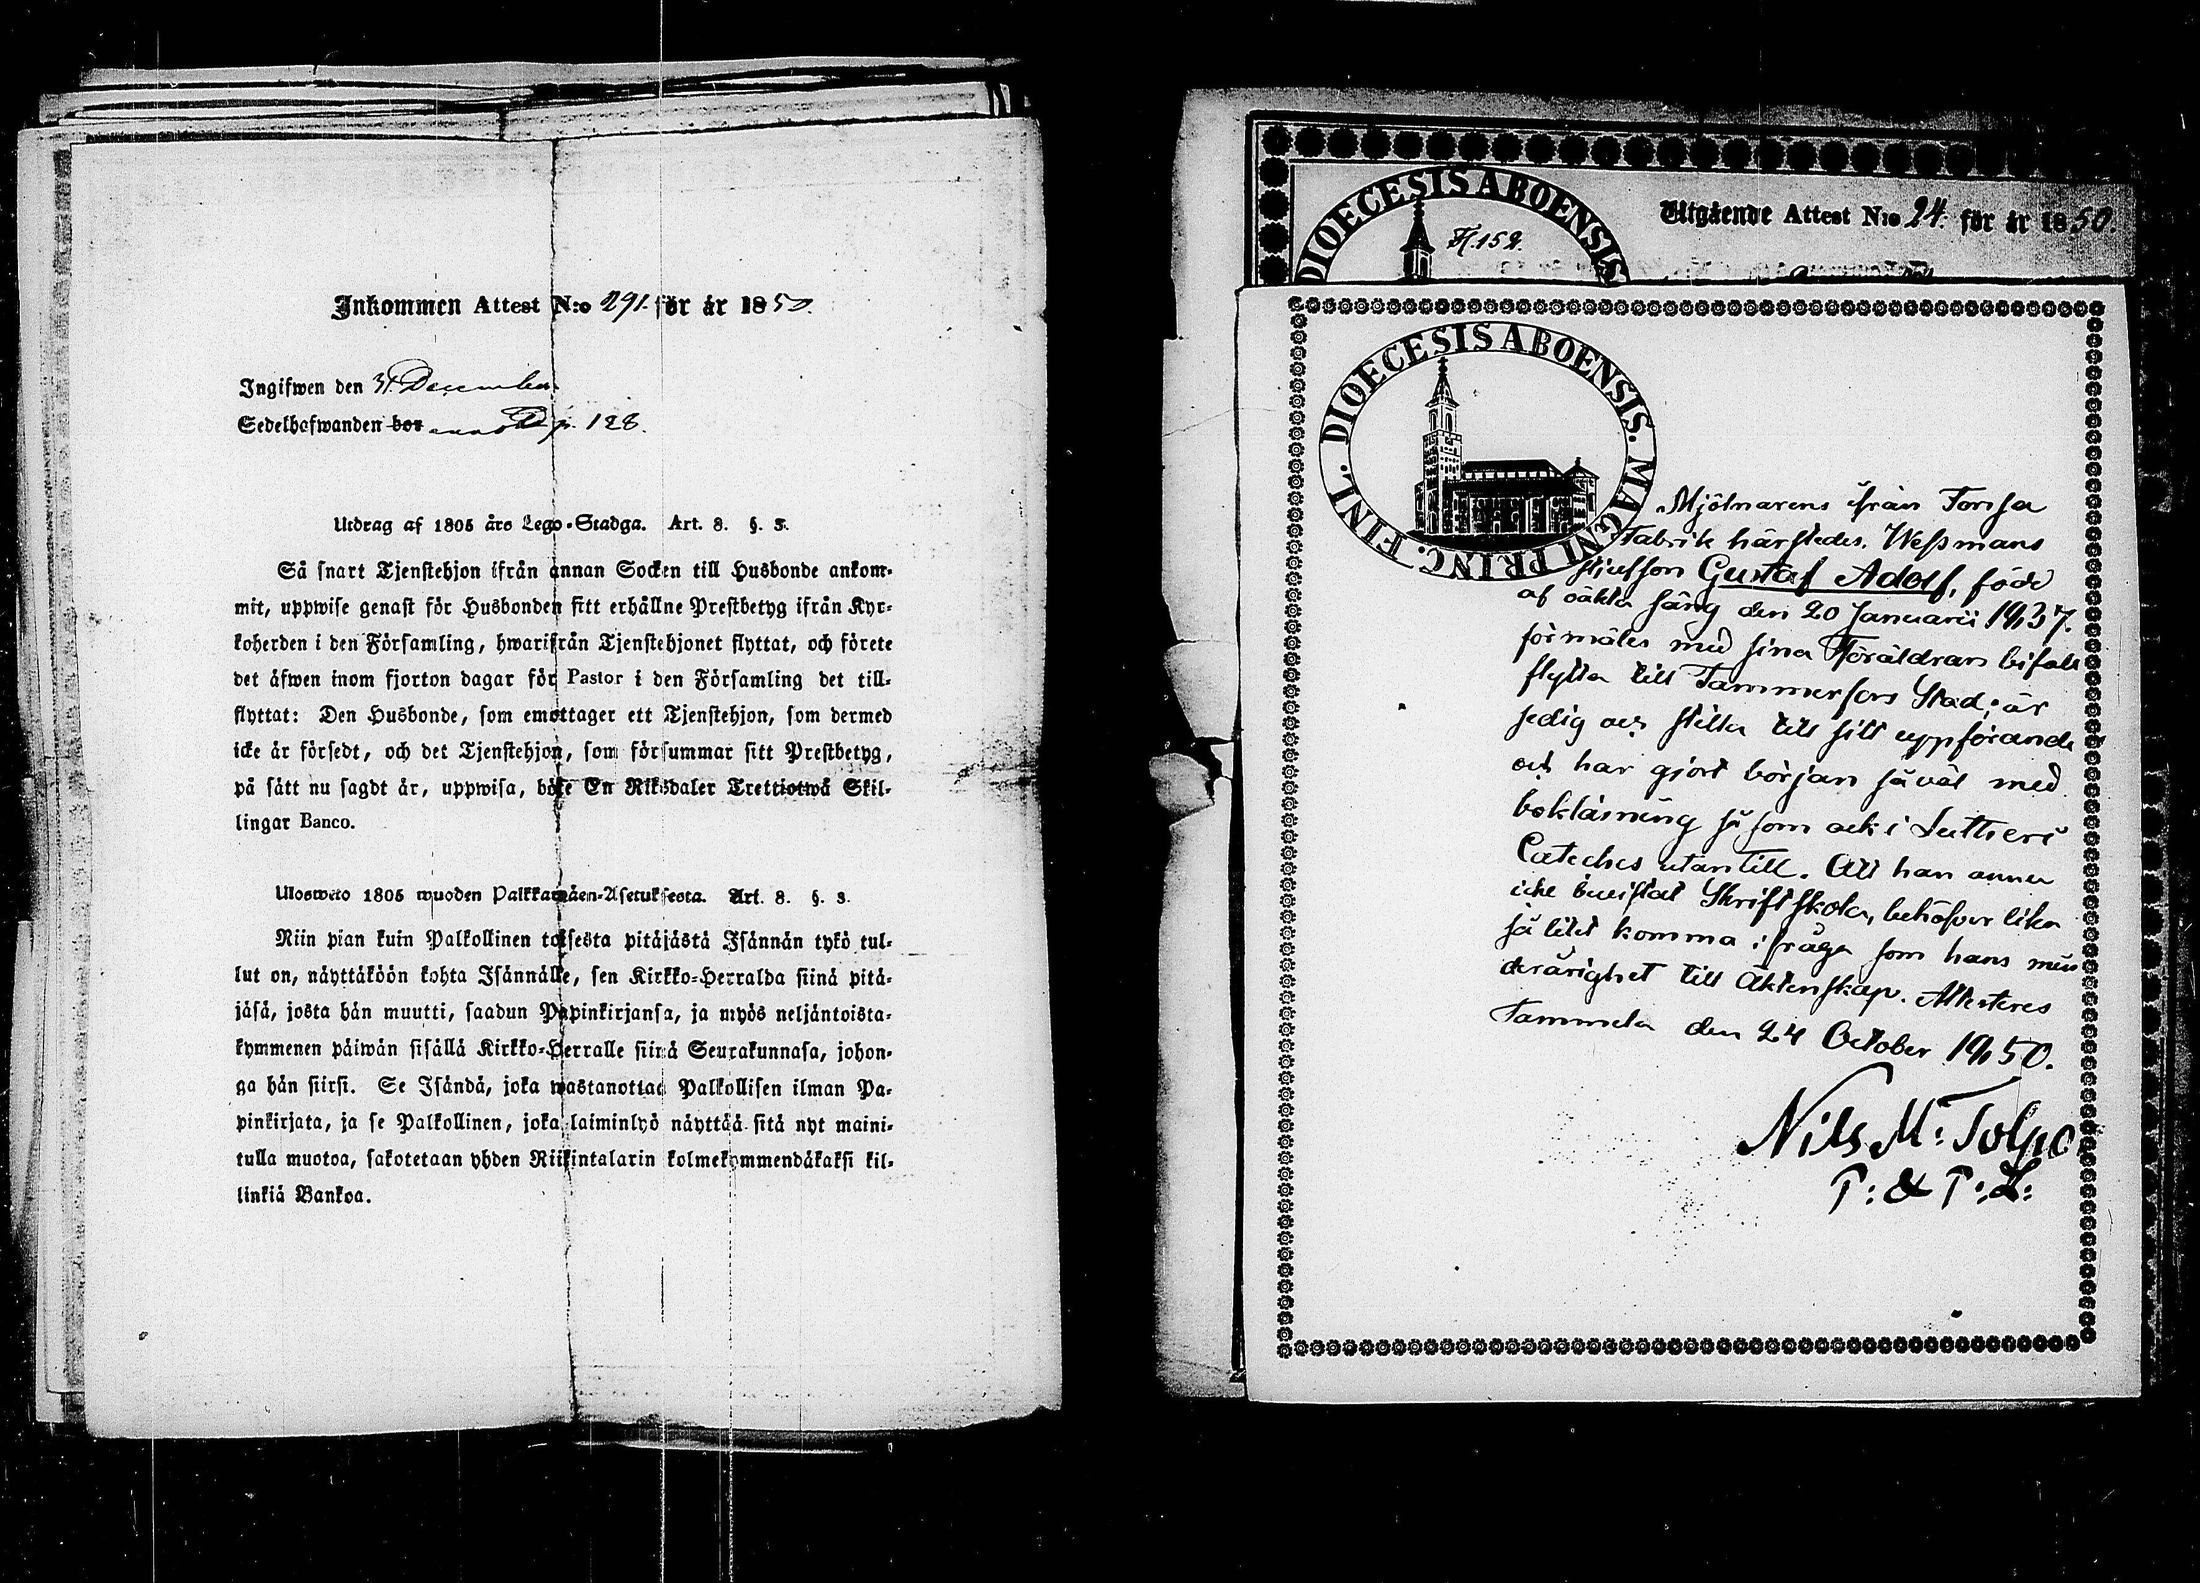 Inkommen Attest N:o 291. för år 1850.
Ingifwen den 31 December
Sedelhafwanden bor p. 128.
Utdrag af 1805 års Lego-Stadga. Art. 8. §. 3.
Så snart Tjenstehjon ifrån annan Socken till Husbonde ankom-
mit, uppwise genast för Husbonden sitt erhållne Prestbetyg ifrån Kyr-
koherden i den Församling, hwarifrån Tjenstehjonet flyttat, och förete
det äfwen inom fjorton dagar för Pastor i den Församling det till-
flyttat: Den Husbonde, som emottager ett Tjenstehjon, som dermed
icke är försedt, och det Tjenstehjon, som försummar sitt Prestbetyg,
på sätt nu sagdt är, uppwisa, böte En Riksdaler Trettiotwå Skil-
lingar Banco.
Ulosweto 1805 wuoden Palkkawäen-Asetuksesta. Art. 8. §. 3.
Niin pian kuin Palkollinen toisesta pitäjästä Isännän tykö tul-
lut on, näyttäköön kohta Isännälle, sen Kirkko-Herralda siinä pitä-
jäsä, josta hän muutti, saadun Papinkirjansa, ja myös neljäntoista-
kymmenen päiwän sisällä Kirkko-Herralle siinä Seurakunnasa, johon-
ga hän siirsi. Se Isändä, joka wastanottaa Palkollisen ilman Pa-
pinkirjata, ja se Palkollinen, joka laiminlyö näyttää sitä nyt maini-
tulla muotoa, sakotetaan yhden Riikintalarin kolmekymmendäkaksi kil-
linkiä Bankoa.
DIOECESIS ABOENSIS
H. 152.
Utgående Attest N:o 24. för år 1850.
DIOECESIS ABOENSIS. MAGNI PRINC. FINL.
Mjölnarens ifrån Forssa
Fabrik härstedes. Wessmans
stjufson Gustaf Adolf, född
af oäkta säng den 20 Januarii 1837.
förmäles med sina Föräldrars bifall
flytta till Tammerfors Stad; är
ledig och stilla till sitt uppförande
och har gjort början så väl med
bokläsning så som ock i Lutheri
Cateches utantill. Att han annu
icke bevistat Skriftskola, behöfver lika
så litet komma i fråga som hans min
derårighet till Äktenskap. Attesteres
Tammela den 24 October 1850.
Nils M: Tolpo
P: & P: L: